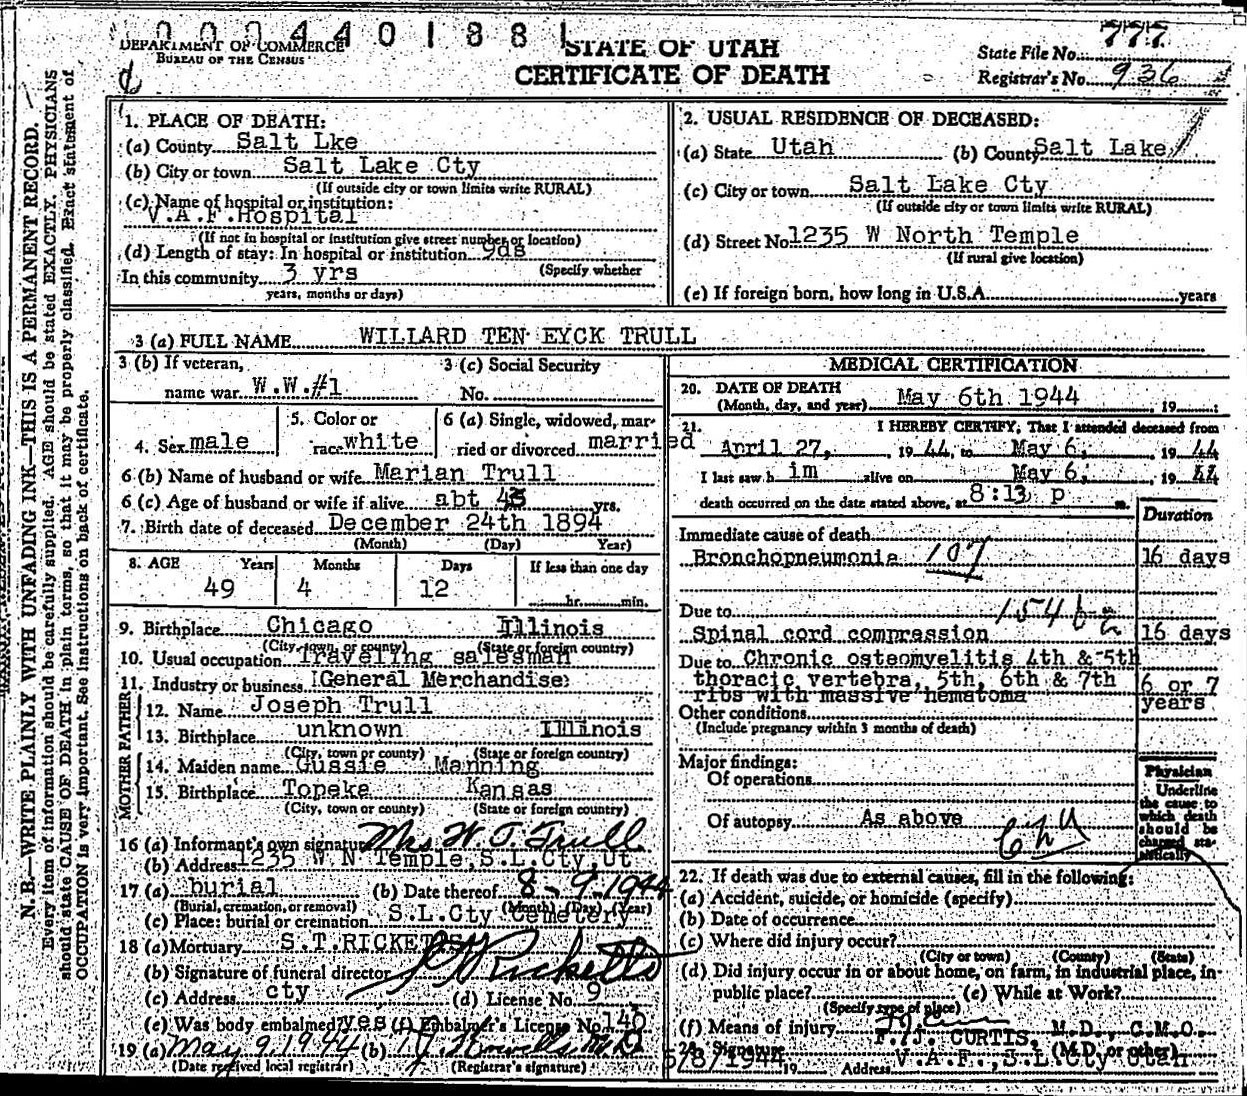 0004401881
DEPARTMENT OF COMMERCE
BUREAU OF THE CENSUS
STATE OF UTAH
CERTIFICATE OF DEATH
State File No. 777
Registrar's No. 936
N. B.—WRITE PLAINLY WITH UNFADING INK—THIS IS A PERMANENT RECORD.
Every item of information should be carefully supplied. AGE should be stated EXACTLY. PHYSICIANS
should state CAUSE OF DEATH in plain terms, so that it may be properly classified. Exact statement of
OCCUPATION is very important. See instructions on back of certificate.
1. PLACE OF DEATH:
(a) County Salt Lke
(b) City or town Salt Lake Cty
(If outside city or town limits write RURAL)
(c) Name of hospital or institution:
V.A.F.Hospital
(If not in hospital or institution give street number or location)
(d) Length of stay: In hospital or institution 9ds
(Specify whether
In this community 3 yrs
years, months or days)
2. USUAL RESIDENCE OF DECEASED:
(a) State Utah (b) County Salt Lake
(c) City or town Salt Lake Cty
(If outside city or town limits write RURAL)
(d) Street No. 1235 W North Temple
(If rural give location)
(e) If foreign born, how long in U.S.A. years
3 (a) FULL NAME WILLARD TEN EYCK TRULL
3 (b) If veteran,
name war W.W.#1
3 (c) Social Security
No.
4. Sex male
5. Color or
race white
6 (a) Single, widowed, mar-
ried or divorced married
6 (b) Name of husband or wife Marian Trull
6 (c) Age of husband or wife if alive abt yrs.
7. Birth date of deceased December 24th 1894
(Month) (Day) Year)
8. AGE Years Months Days If less than one day
49 4 12
hr. min.
9. Birthplace Chicago Illinois
(City, town, or county) (State or foreign country)
10. Usual occupation Traveling salesman
11. Industry or business (General Merchandise)
FATHER
12. Name Joseph Trull
13. Birthplace unknown Illinois
(City, town or county) (State or foreign country)
MOTHER
14. Maiden name Gussie Manning
15. Birthplace Topeka Kansas
(City, town or county) (State or foreign country)
16 (a) Informant's own signature Mrs W. T. Trull
(b) Address 1235 W N Temple,S.L.Cty,Ut
17 (a) burial (b) Date thereof 8-9-1944
(Burial, cremation, or removal) (Month) (Day) (Year)
(c) Place: burial or cremation S.L.Cty Cemetery
18 (a) Mortuary S.T.RICKETTS
(b) Signature of funeral director Ricketts
(c) Address cty (d) License No. 9
(e) Was body embalmed yes (f) Embalmer's License No. 145
19 (a) May 9, 1944 (b)
(Date received local registrar) (Registrar's signature)
MEDICAL CERTIFICATION
20. DATE OF DEATH
(Month, day, and year) May 6th 1944 , 19
21. I HEREBY CERTIFY, That I attended deceased from
April 27, , 19 44, to May 6, , 19 44
I last saw h im alive on May 6, , 19 44
death occurred on the date stated above, at 8:13 p m.
Duration
Immediate cause of death
Bronchopneumonia 107 16 days
Due to
Spinal cord compression 16 days
Due to Chronic osteomyelitis 4th & 5th
thoracic vertebra, 5th, 6th & 7th
ribs with massive hematoma
6 or 7
years
Other conditions
(Include pregnancy within 3 months of death)
Major findings:
Of operations
Of autopsy As above
Physician
Underline
the cause to
which death
should be
charged sta-
tistically
22. If death was due to external causes, fill in the following:
(a) Accident, suicide, or homicide (specify)
(b) Date of occurrence
(c) Where did injury occur?
(City or town) (County) (State)
(d) Did injury occur in or about home, on farm, in industrial place, in
public place? (e) While at Work?
(Specify type of place)
(f) Means of injury
F.J. CURTIS, M.D., C.M.O.
Signature (M.D. or other)
5/8/1944 19 Address V.A.F.,S.L.Cty Utah